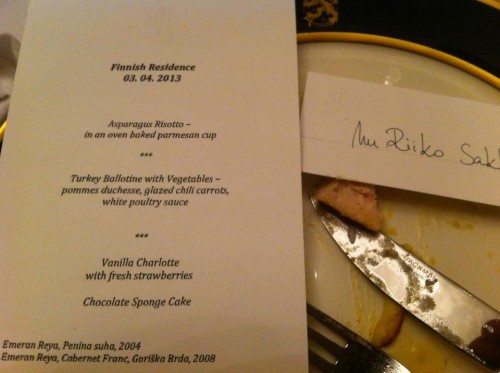 Finnish Residence
03. 04. 2013
Asparagus Risotto –
in an oven baked parmesan cup
***
Turkey Ballotine with Vegetables –
pommes duchesse, glazed chili carrots,
white poultry sauce
***
Vanilla Charlotte
with fresh strawberries
Chocolate Sponge Cake
Emeran Reya, Penina suha, 2004
Emeran Reya, Cabernet Franc, Goriška Brda, 2008
Riiko